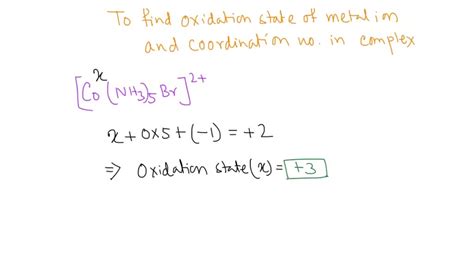 To find oxidation state of metal ion
and coordination no. in complex
x
[Co(NH3)5Br]2+
x + 0x5 + (-1) = +2
⇒ Oxidation state (x) = +3